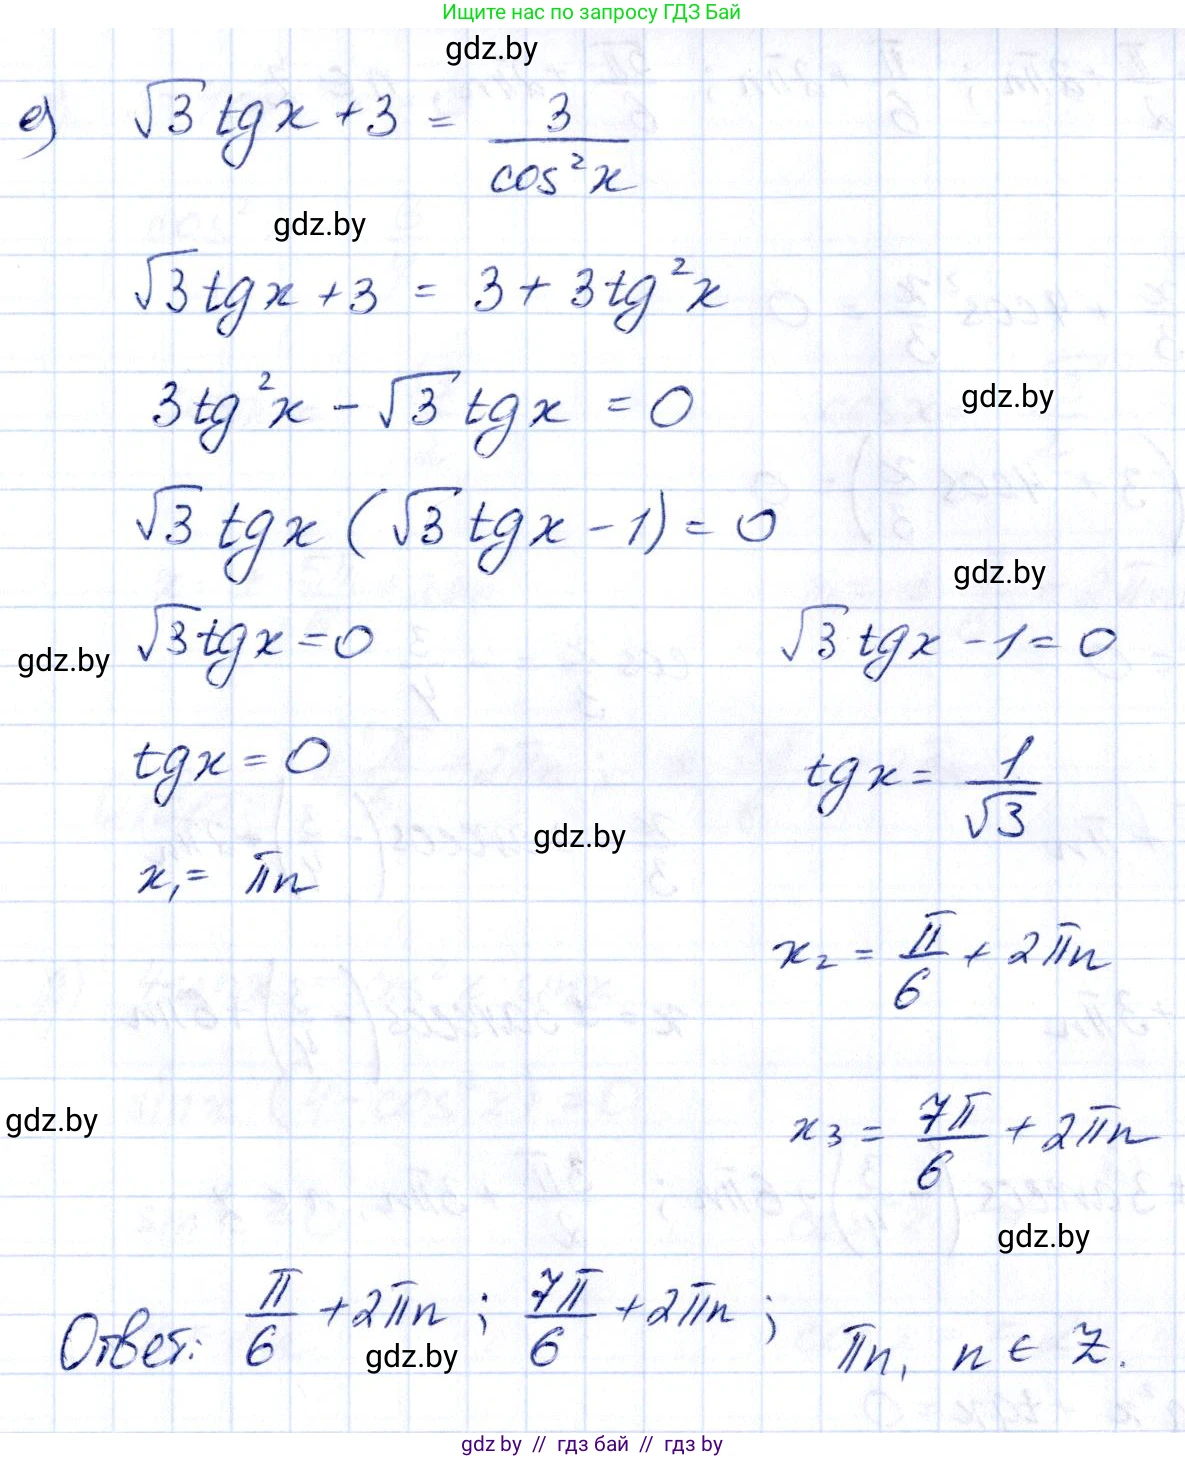 Ищите нас по запросу ГДЗ Бай
gdz.by
е) √3 tgx + 3 = 3/cos²x
gdz.by
√3 tgx + 3 = 3 + 3tg²x
3tg²x - √3 tgx = 0
gdz.by
√3 tgx (√3 tgx - 1) = 0
gdz.by
√3 tgx = 0 √3 tgx - 1 = 0
gdz.by
tgx = 0 tgx = 1/√3
gdz.by
x₁ = πn
x₂ = π/6 + 2πn
gdz.by
x₃ = 7π/6 + 2πn
gdz.by
Ответ: π/6 + 2πn ; 7π/6 + 2πn ; πn, n ∈ Z.
gdz.by
gdz.by // гдз бай // гдз by